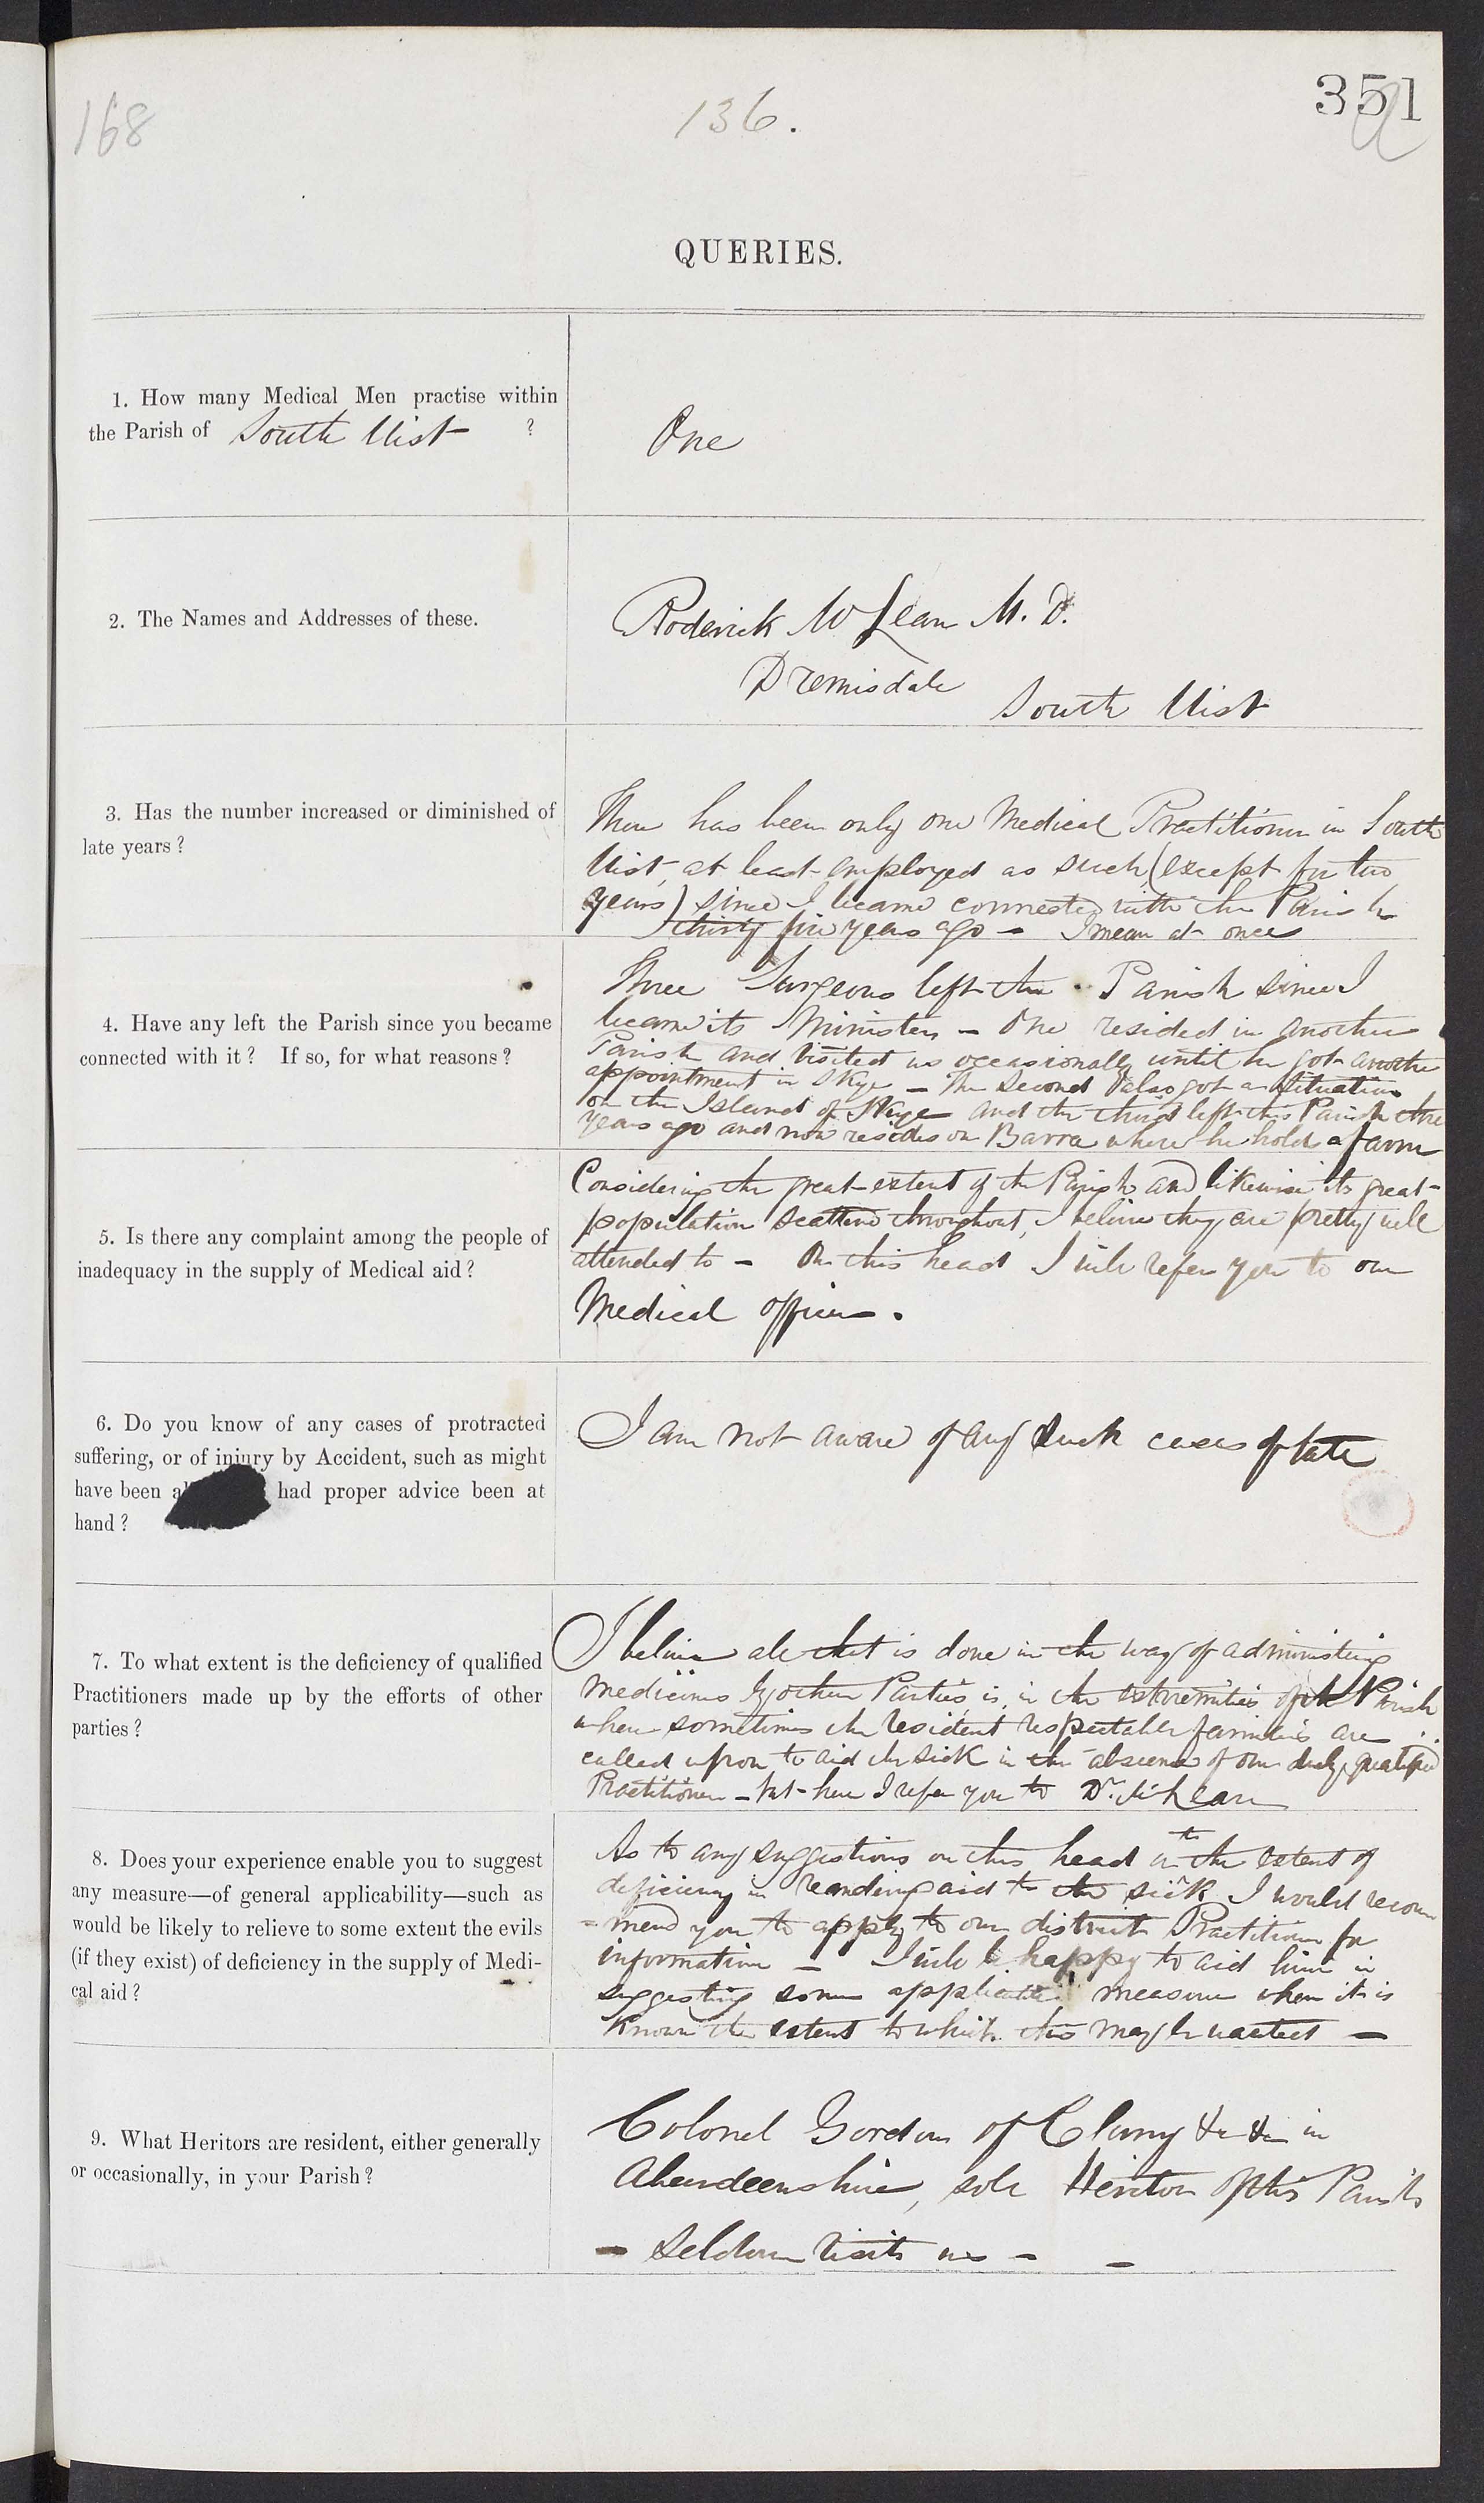 168
136.
351
a
QUERIES.
1. How many Medical Men practise within
the Parish of South Uist ?
One
2. The Names and Addresses of these.
Roderick McLean M.D.
Dremisdale
South Uist
3. Has the number increased or diminished of
late years?
There has been only one Medical Practitioner in South
Uist, at least employed as such, (except for two
years) since I became connected with the Parish
thirty five years ago - I mean at once
4. Have any left the Parish since you became
connected with it? If so, for what reasons?
Three Surgeons left the Parish since I
became its Minister - One resided in another
Parish and visited us occasionally until he got another
appointment in Skye - The second also got a situation
on the Island of Skye and the third left this Parish three
years ago and now resides on Barra where he holds a farm
5. Is there any complaint among the people of
inadequacy in the supply of Medical aid?
Considering the great extent of the Parish and likewise its great
population scattered throughout, I believe they are pretty well
attended to - On this head I will refer you to our
Medical officer.
6. Do you know of any cases of protracted
suffering, or of injury by Accident, such as might
have been had proper advice been at
hand?
I am not aware of any such cases of late
7. To what extent is the deficiency of qualified
Practitioners made up by the efforts of other
parties?
I believe all that is done in the way of administering
Medicines by other Parties, is, in the extremities of the Parish
where sometimes the resident respectable families are
called upon to aid the sick in the absence of our duly qualified
Practitioner - but here I refer you to Dr. McLean
8. Does your experience enable you to suggest
any measure—of general applicability—such as
would be likely to relieve to some extent the evils
(if they exist) of deficiency in the supply of Medi-
cal aid?
As to any suggestions on this head or to the extent of
deficiency in rendering aid to the sick I would recom
=mend you to apply to our district Practitioner for
information - I will be happy to aid him in
suggesting some applicable measure when it is
known the extent to which this may be wanted -
9. What Heritors are resident, either generally
or occasionally, in your Parish?
Colonel Gordon of Cluny &c &c in
Aberdeenshire, sole Heritor of this Parish
- seldom visits us - -